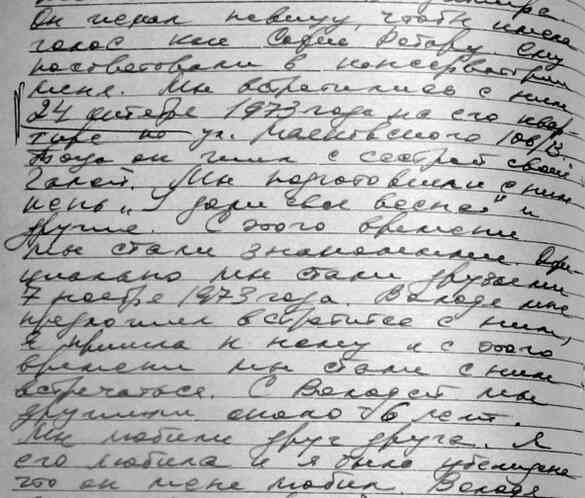 Он искал певицу, чтобы имела
голос как София Ротару. Ему
посоветовали в консерватории
меня. Мы встретились с ним
24 октября 1973 года на его квар-
тире по ул. Маяковского 106/13.
Тогда он жил с сестрой своей
Галей. Мы подготовили с ним
песнь "Я
другие. С этого времени
мы стали знакомыми. Офи-
циально мы стали друзьями
7 ноября 1973 года. Володя мне
предложил встретится с ним,
я пришла к нему и с этого
времени мы стали с ним
встречаться. С Володей мы
дружили около 6 лет.
Мы любили друг друга. Я
его любила и я была убеждена
что он меня любил. Володя